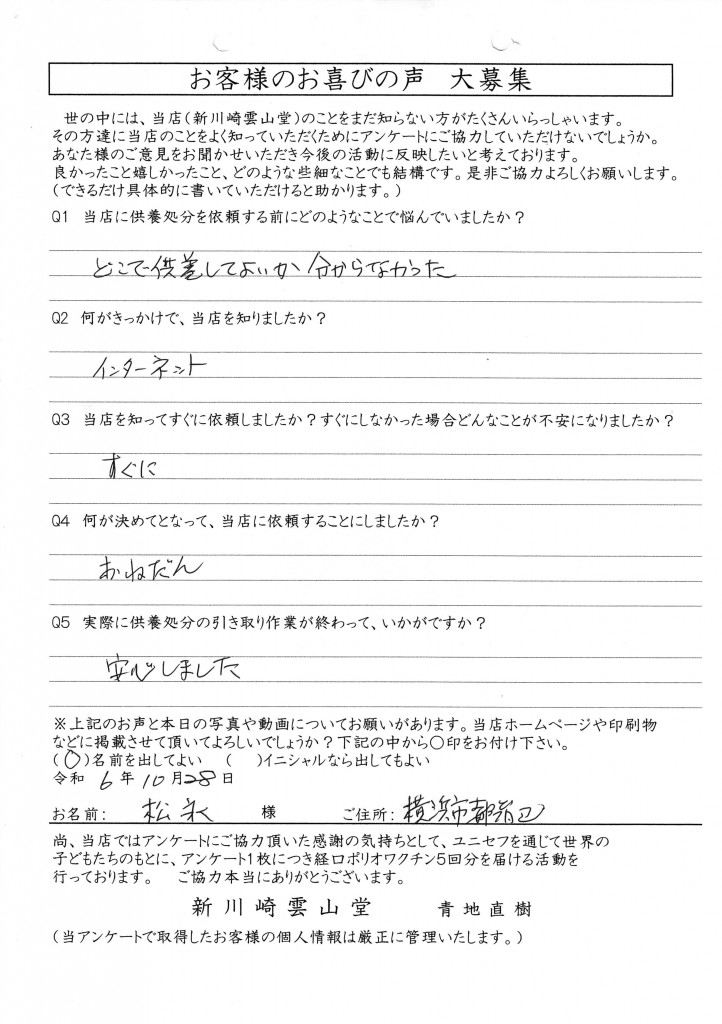 お客様のお喜びの声　大募集
世の中には、当店（新川崎雲山堂）のことをまだ知らない方がたくさんいらっしゃいます。
その方達に当店のことをよく知っていただくためにアンケートにご協力していただけないでしょうか。
あなた様のご意見をお聞かせいただき今後の活動に反映したいと考えております。
良かったこと嬉しかったこと、どのような些細なことでも結構です。是非ご協力よろしくお願いします。
（できるだけ具体的に書いていただけると助かります。）
Q1　当店に供養処分を依頼する前にどのようなことで悩んでいましたか？
どこで供養してよいか 分からなかった
Q2　何がきっかけで、当店を知りましたか？
インターネット
Q3　当店を知ってすぐに依頼しましたか？すぐにしなかった場合どんなことが不安になりましたか？
すぐに
Q4　何が決めてとなって、当店に依頼することにしましたか？
おねだん
Q5　実際に供養処分の引き取り作業が終わって、いかがですか？
安心しました
※上記のお声と本日の写真や動画についてお願いがあります。当店ホームページや印刷物
などに掲載させて頂いてよろしいでしょうか？下記の中から〇印をお付け下さい。
（〇）名前を出してよい　（　）イニシャルなら出してもよい
令和 6 年 10 月 28 日
お名前：　松永　様　ご住所：　横浜市都筑区
尚、当店ではアンケートにご協力頂いた感謝の気持ちとして、ユニセフを通じて世界の
子どもたちのもとに、アンケート1枚につき経口ポリオワクチン5回分を届ける活動を
行っております。　ご協力本当にありがとうございます。
新川崎雲山堂　青地直樹
（当アンケートで取得したお客様の個人情報は厳正に管理いたします。）